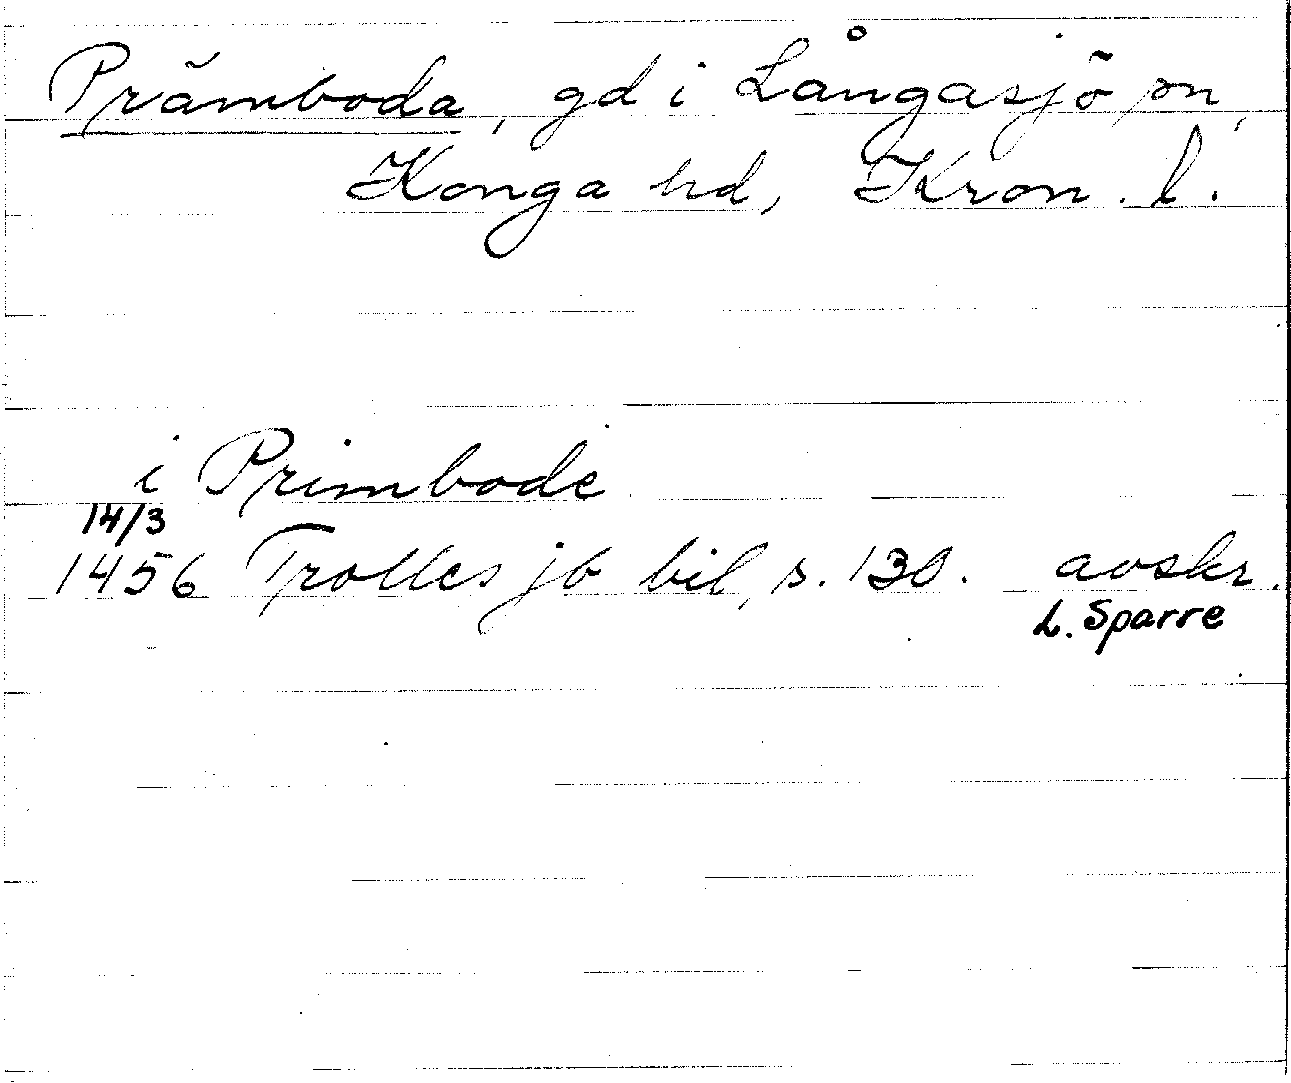 Prämboda, gd i Långasjö sn,
Konga hd, Kron. l.
i Primbode
14/3
1456 Trolles jb bil, s. 130. avskr.
L. Sparre